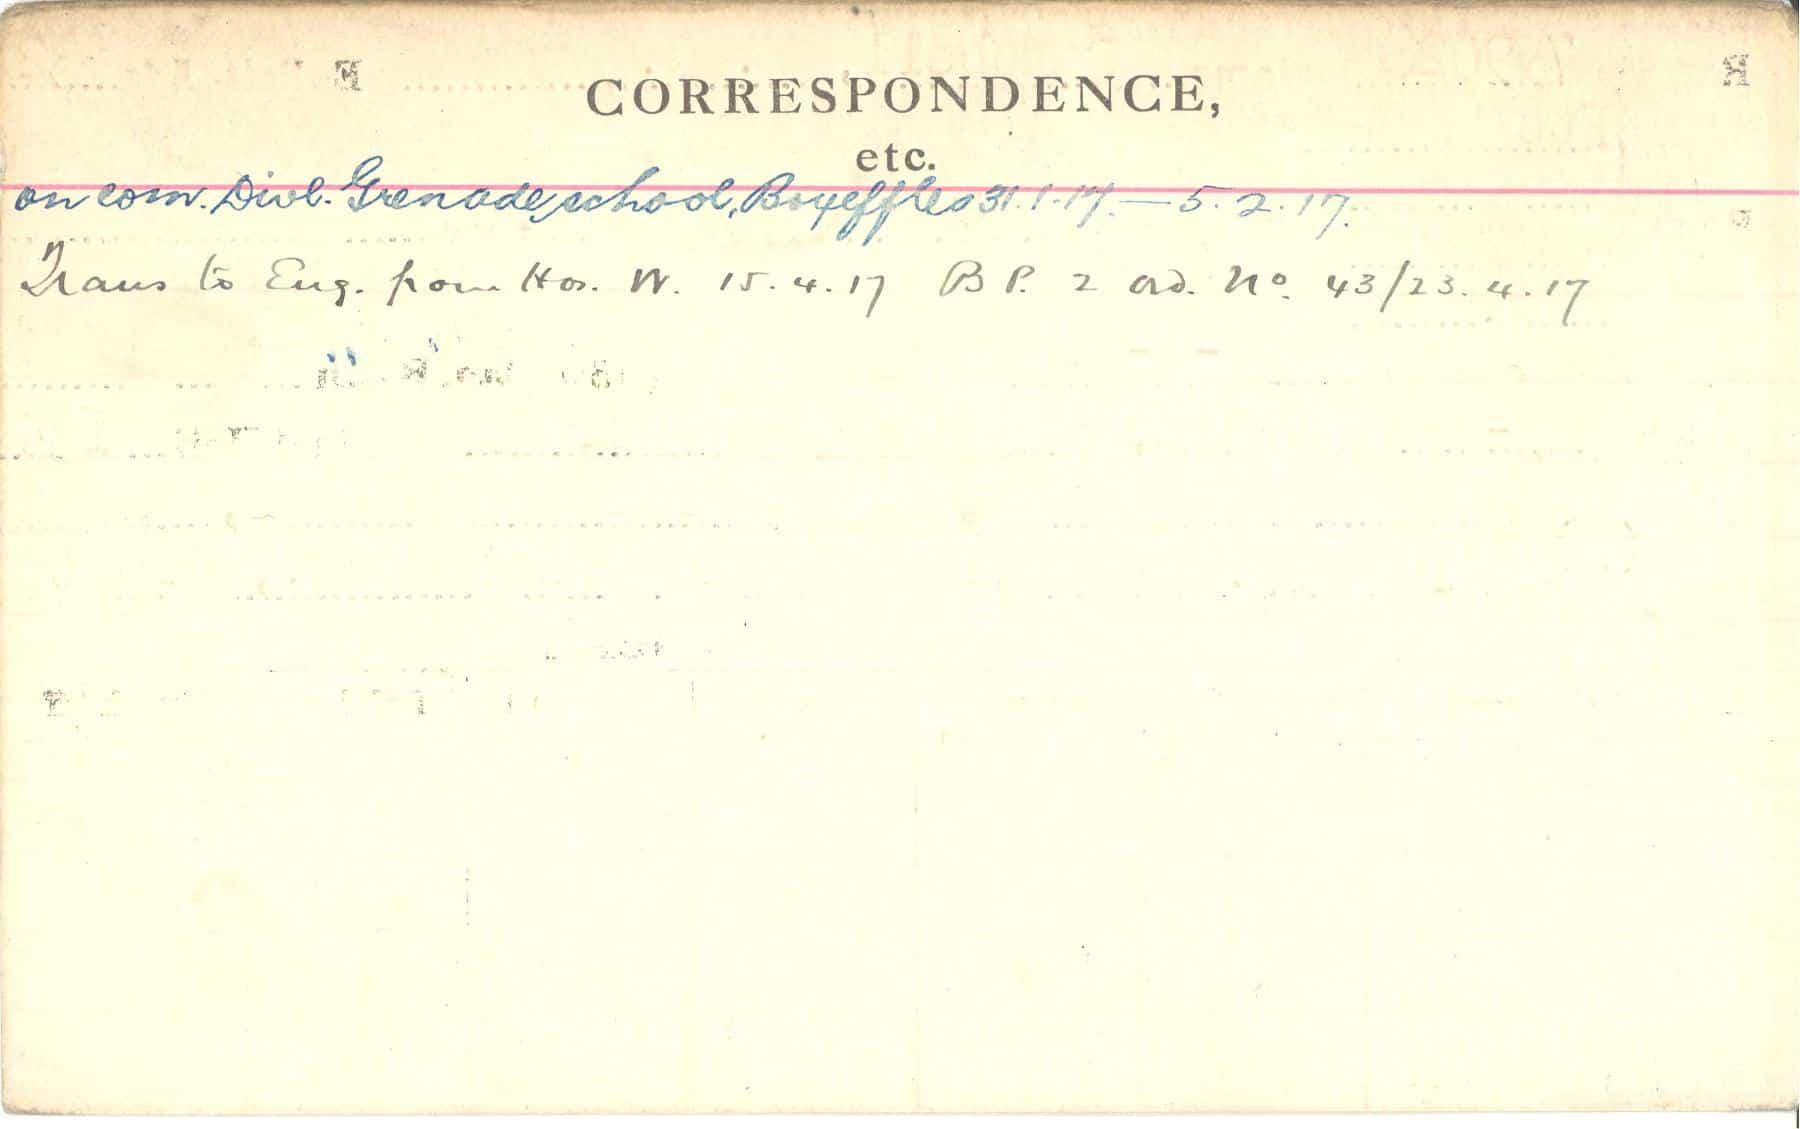 CORRESPONDENCE,
etc.
on com. Divl. Grenade school, Boyeffles 31.1.17. — 5.2.17.
Trans to Eng. from Hos. W. 15.4.17 B P. 2 ord. No. 43/23.4.17